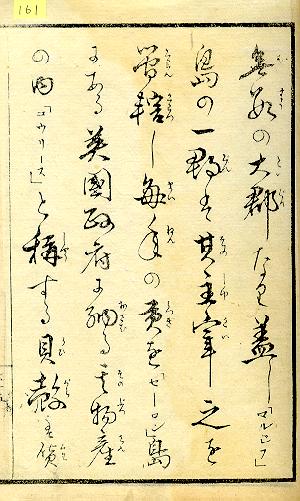 161
無数の大郡なり蓋し「マルヂブ」
島の一郡は其主宰之を
管轄し毎年の貢を「セーロン」島
にある英國政府に納る其物産
の内「コウリース」と稱する貝殻